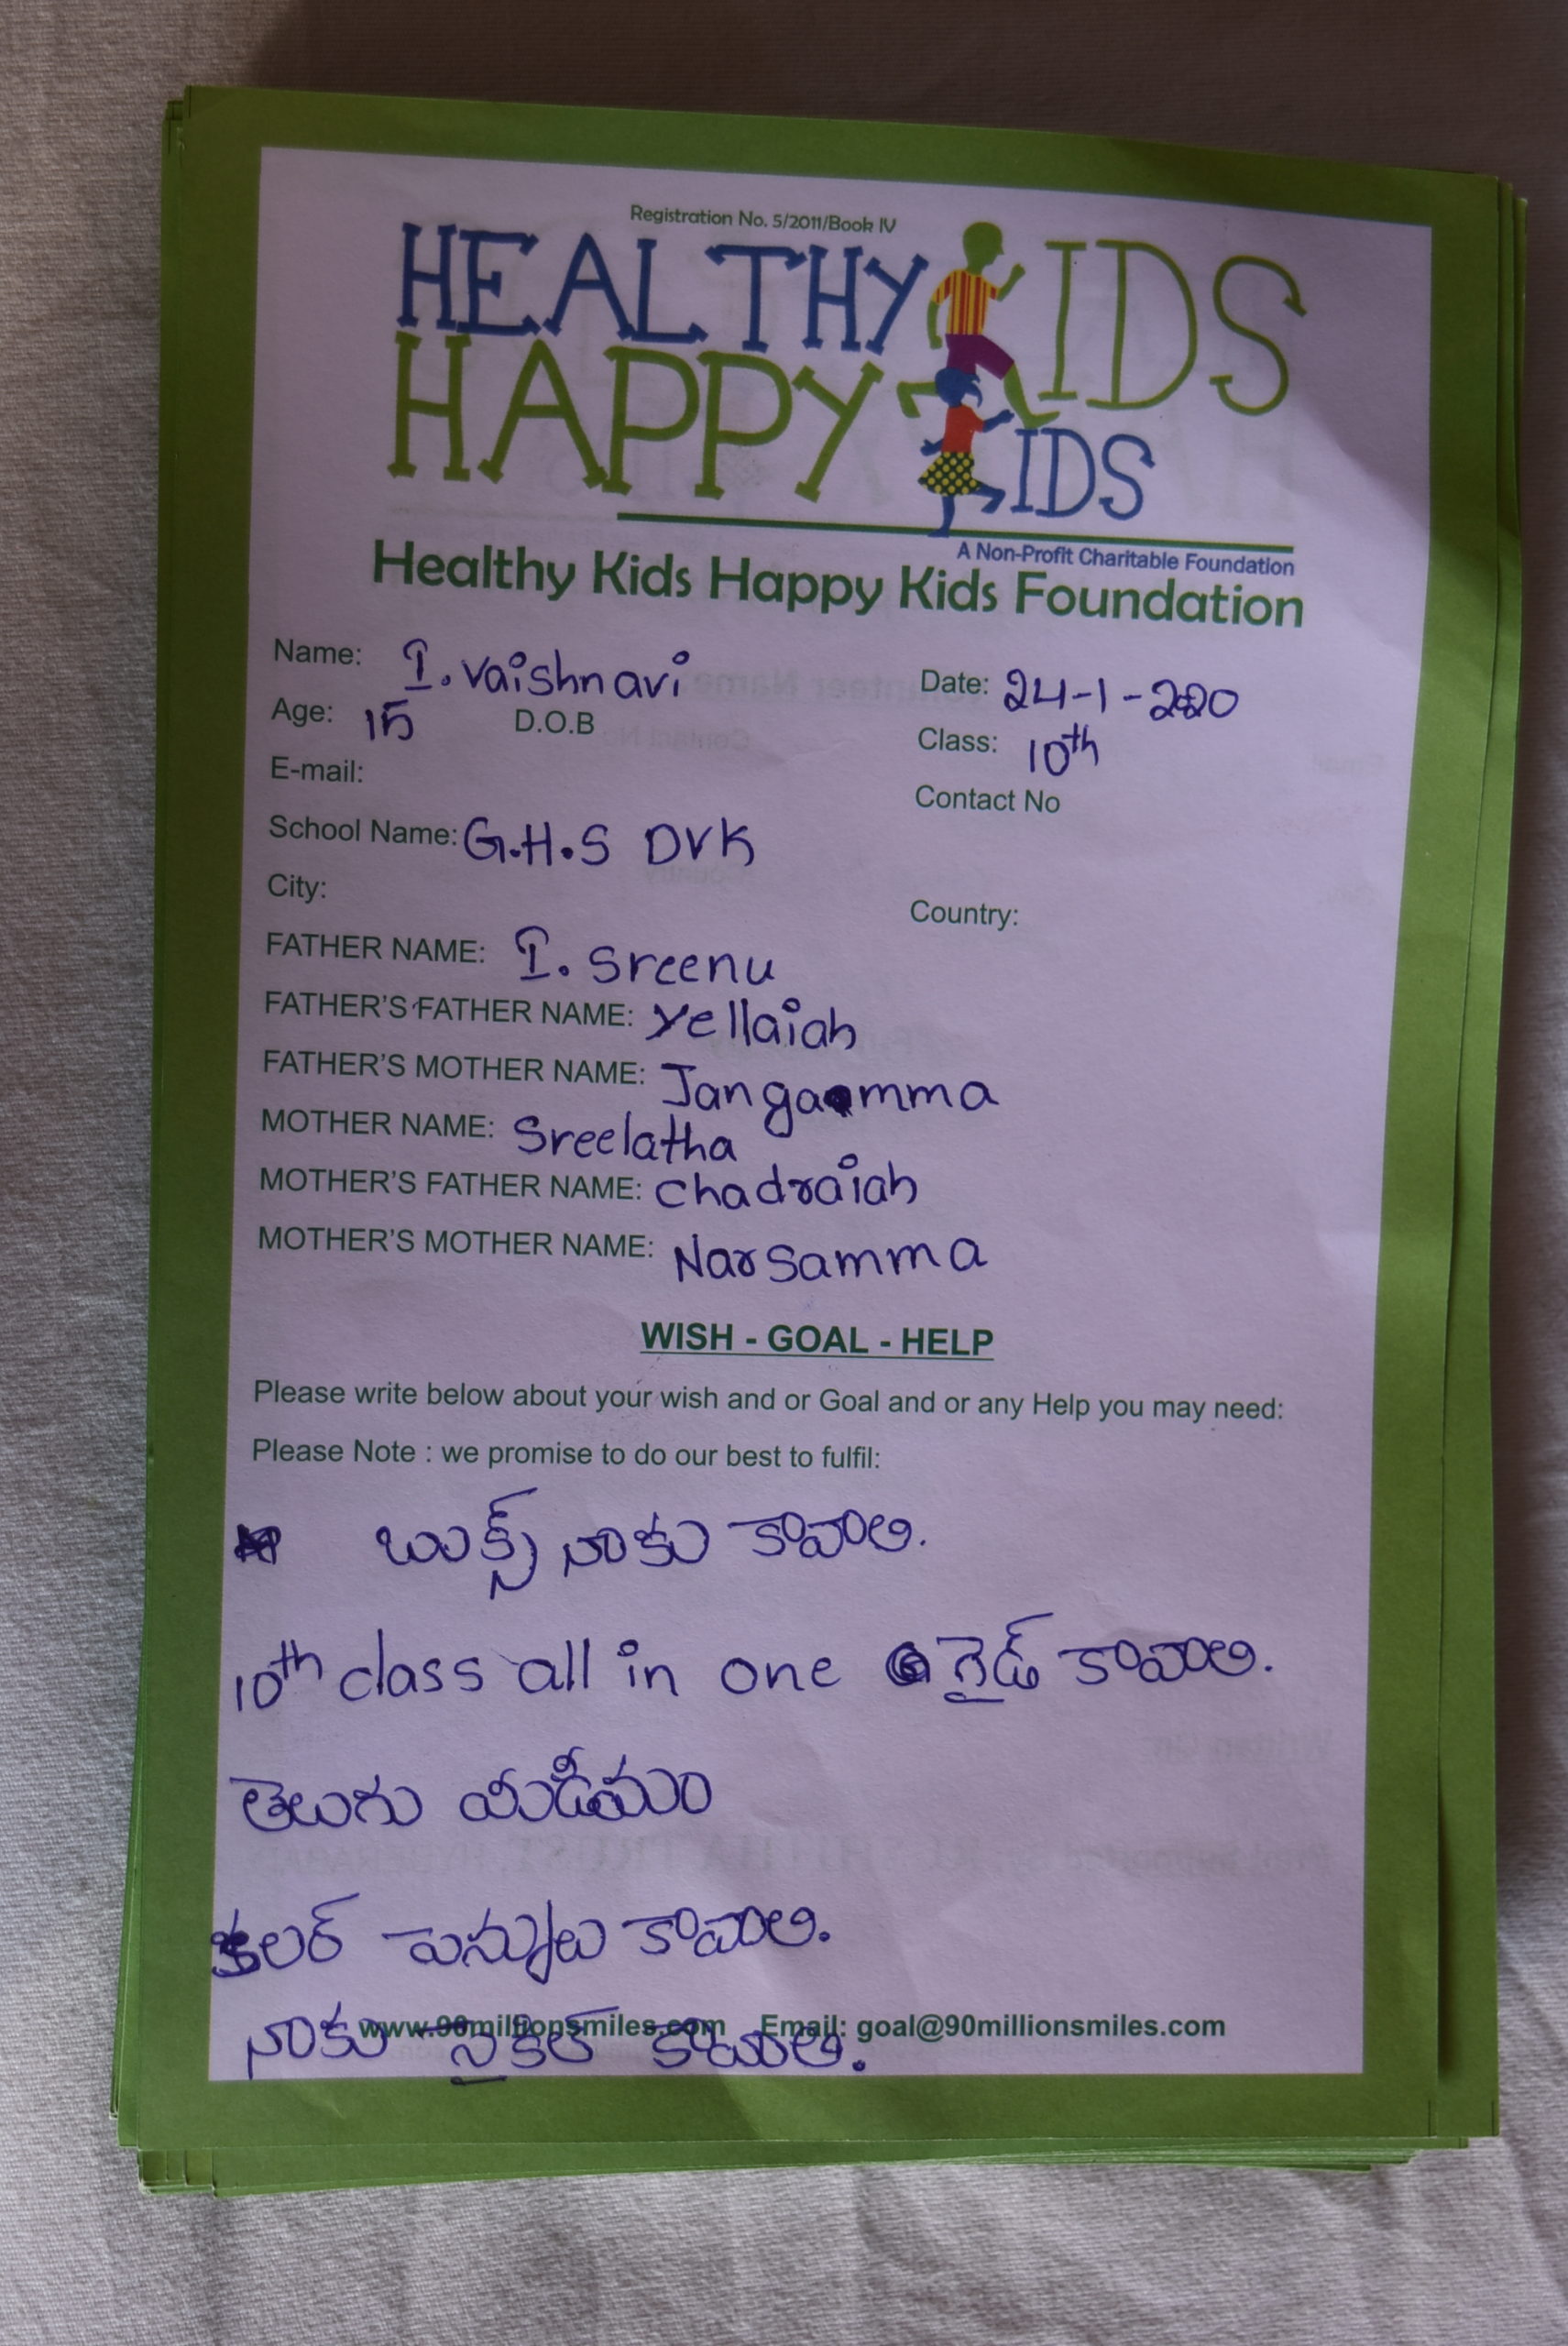 Registration No. 5/2011/Book IV
HEALTHY KIDS
HAPPY KIDS
A Non-Profit Charitable Foundation
Healthy Kids Happy Kids Foundation
Name: I. Vaishnavi Date: 24-1-2020
Age: 15 D.O.B Class: 10th
E-mail: Contact No
School Name: G.H.S DVK
City: Country:
FATHER NAME: I. Sreenu
FATHER'S FATHER NAME: Yellaiah
FATHER'S MOTHER NAME: Jangamma
MOTHER NAME: Sreelatha
MOTHER'S FATHER NAME: Chadraiah
MOTHER'S MOTHER NAME: Narsamma
WISH - GOAL - HELP
Please write below about your wish and or Goal and or any Help you may need:
Please Note : we promise to do our best to fulfil:
బుక్స్ నాకు కావాలి.
10th class all in one గైడ్ కావాలి.
తెలుగు మీడీమం
కలర్ పెన్నులు కావాలి.
www.90millionsmiles.com Email: goal@90millionsmiles.com
నాకు సైకిల్ కావాలి.